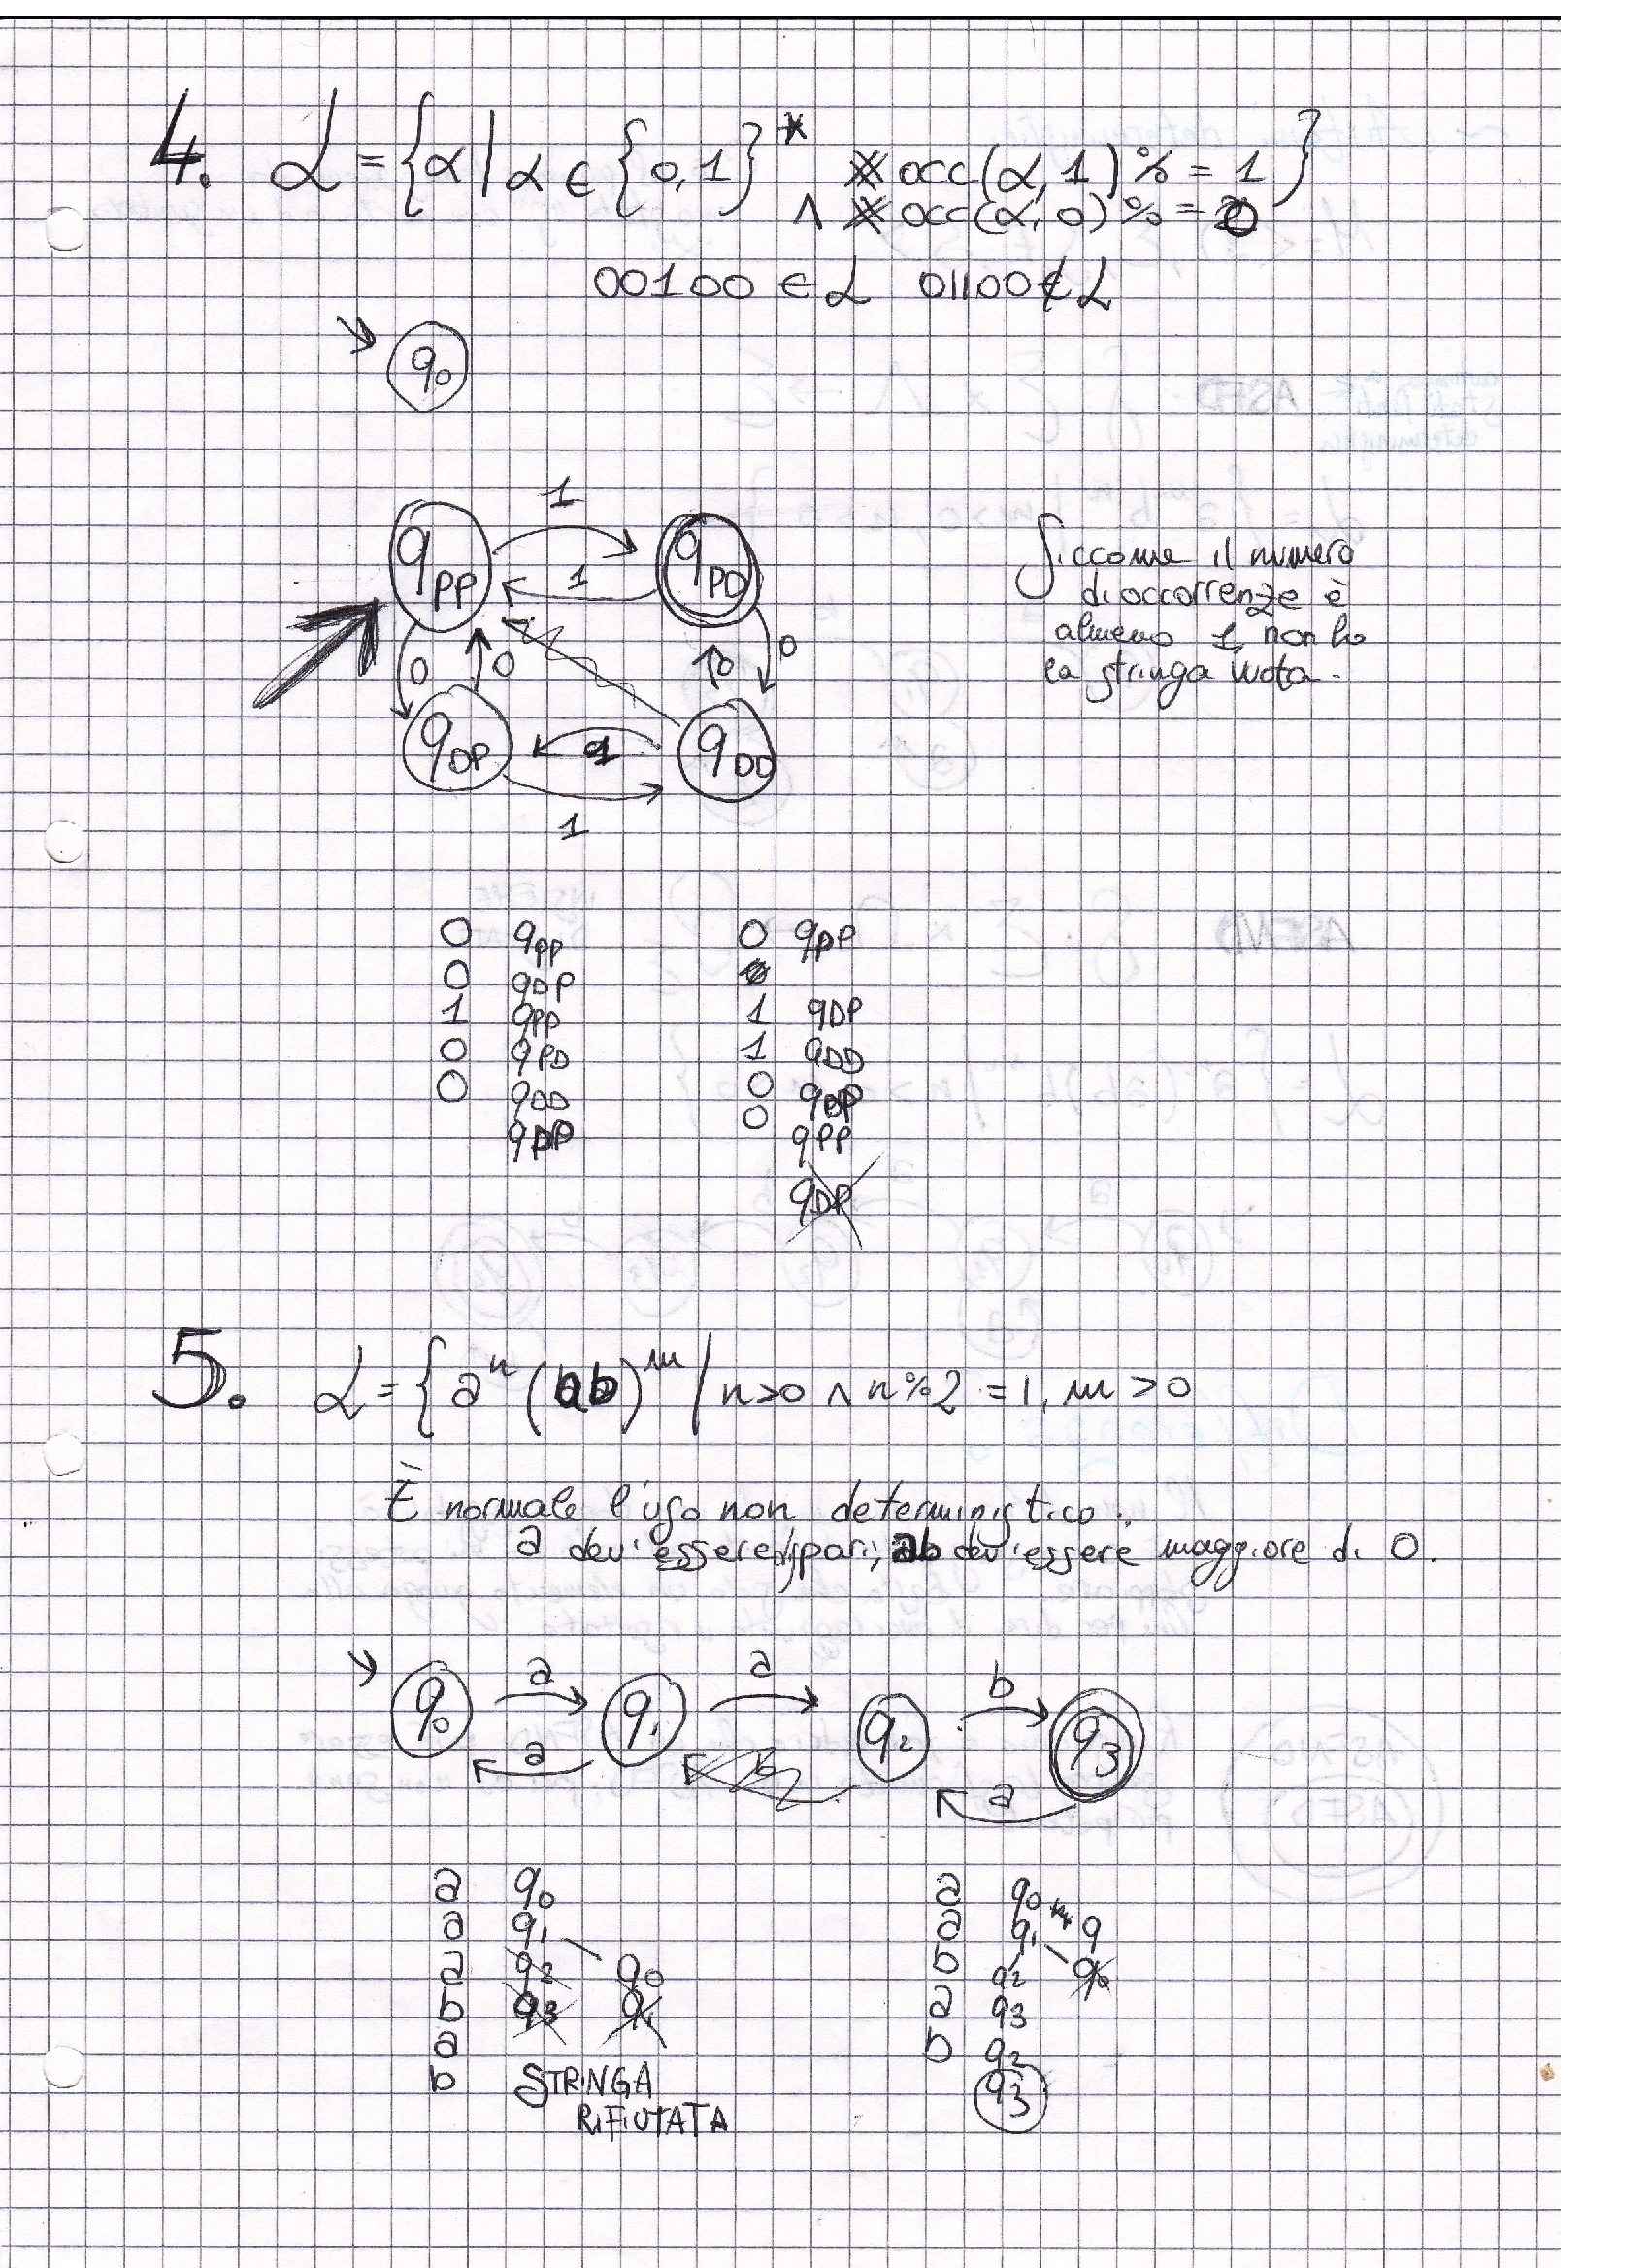 4. L = {α | α ∈ {0,1}* #occ(α, 1) % = 1
∧ #occ(α, 0) % = 0 }
00100 ∈ L 01100 ∉ L
q0
1
qPP 1 qPD
Siccome il numero
di occorrenze è
almeno 1, non ho
la stringa vuota.
0 0 0 0
qDP 1 qDD
1
0 qPP 0 qPP
0 qDP
1 qPP 1 qDP
0 qPD 1 qDD
0 qDD 0 qDP
qPD 0 qPP
qDP
5. L = { aⁿ (ab)ᵐ | n>0 ∧ n%2 = 1, m > 0
È normale l'uso non deterministico.
a dev'essere dispari; ab dev'essere maggiore di 0.
a a b
q0 q1 q2 q3
a b a
a q0 a q0
a q1 a q1 q
a q2 q0 b q2 q0
b q3 q1 a q3
a b q2
b STRINGA q3
RIFIUTATA